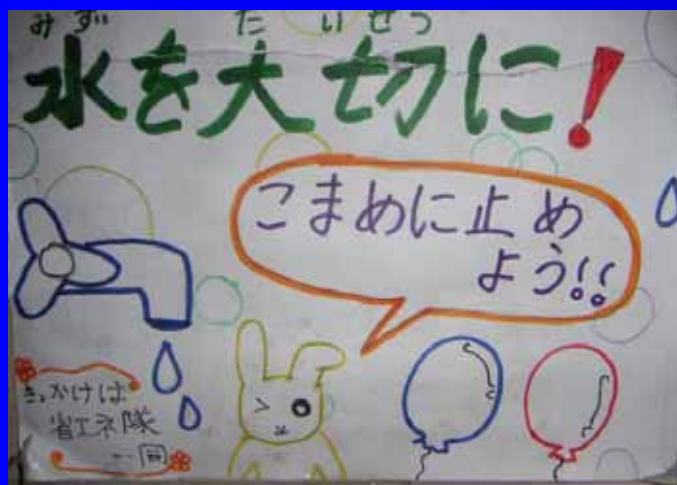 みず たいせつ
水を大切に!
こまめに止め
よう!!
きっかけは
省エネ隊
一同